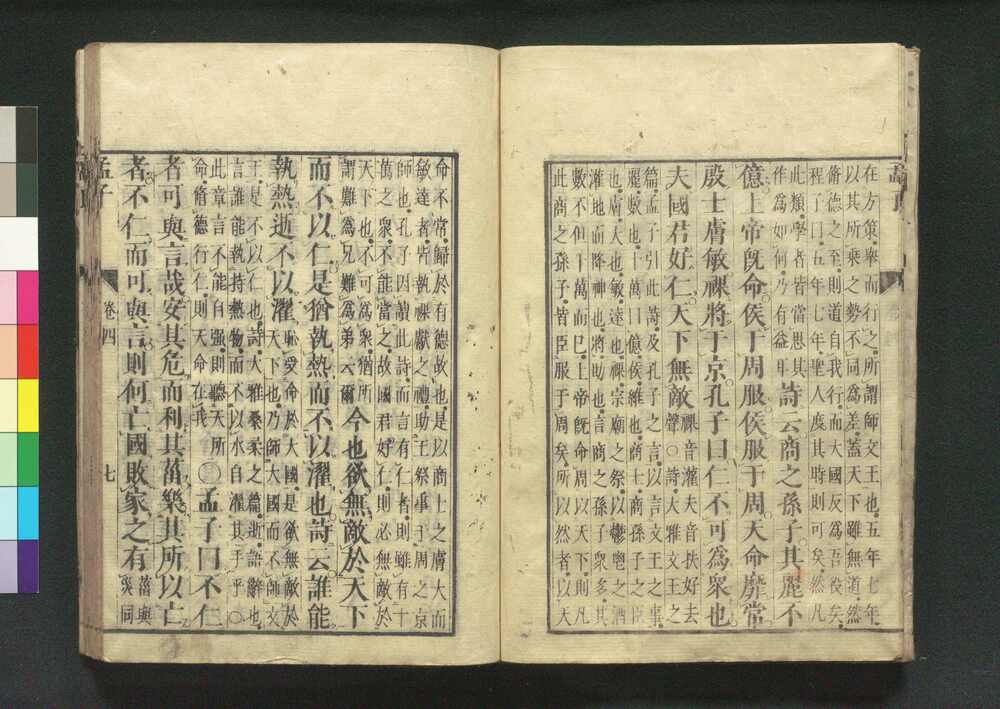 在方策舉而行之所謂師文王也五年七年
以其所乘之勢不同為差蓋天下雖無道然
脩德之至則道自我行而大國反為吾役矣
程子曰五年七年聖人度其時則可矣然凡
此類學者皆當思其
作為如何乃有益耳
詩云商之孫子其麗不
億上帝既命侯于周服侯服于周天命靡常
殷士膚敏祼將于京孔子曰仁不可為衆也
夫國君好仁天下無敵
祼音灌夫音扶好去
聲○詩大雅文王之
篇孟子引此詩及孔子之言以言文王之事
麗數也十萬曰億侯維也商士商孫子之臣
也膚大也敏達也祼宗廟之祭以鬱鬯之酒
灌地而降神也將助也言商之孫子衆多其
數不但十萬而已上帝既命周以天下則凡
此商之孫子皆臣服于周矣所以然者以天
命不常歸於有德故也是以商士之膚大而
敏達者皆執祼獻之禮助王祭事于周之京
師也孔子因讀此詩而言有仁者則雖有十
萬之衆不能當之故國君好仁則必無敵於
天下也不可為衆猶所
謂難為兄難為弟云爾
今也欲無敵於天下
而不以仁是猶執熱而不以濯也詩云誰能
執熱逝不以濯
恥受命於大國是欲無敵於
天下也乃師大國而不師文
王是不以仁也詩大雅桑柔之篇逝語辭也
言誰能執持熱物而不以水自濯其手乎○
此章言不能自強則聽天所
命脩德行仁則天命在我
○孟子曰不仁
者可與言哉安其危而利其菑樂其所以亡
者不仁而可與言則何亡國敗家之有
菑與
災同
孟子
卷四
七